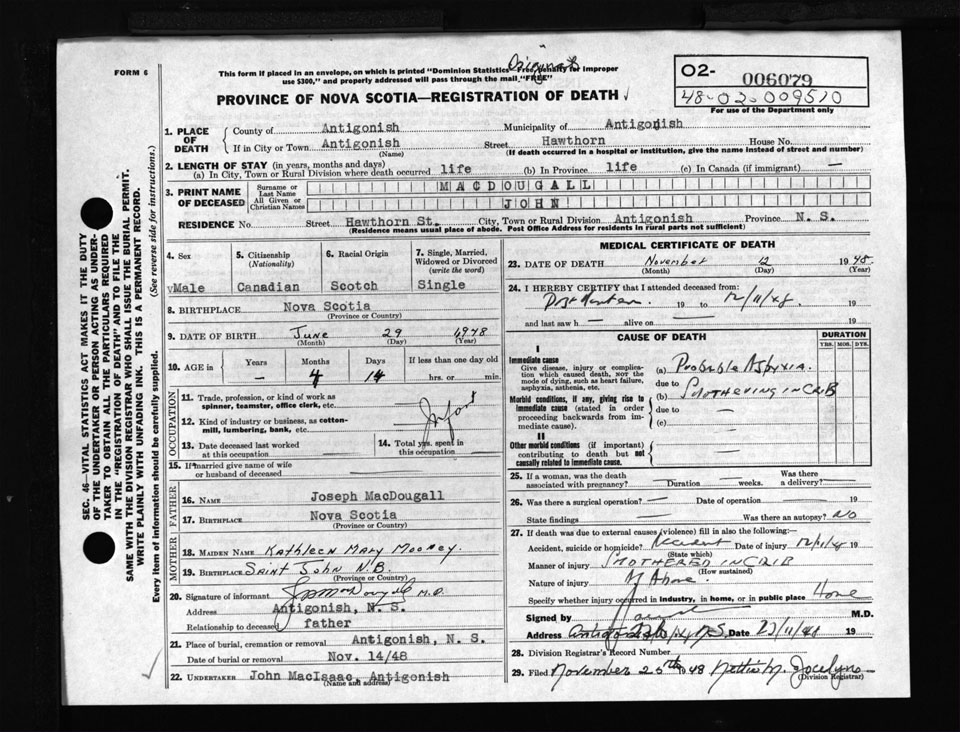 FORM 6
This form if placed in an envelope, on which is printed "Dominion Statistics—Free, penalty for improper
use $300," and properly addressed will pass through the mail "FREE"
Original
PROVINCE OF NOVA SCOTIA—REGISTRATION OF DEATH
O2- 006079
48-02-009510
For use of the Department only
SEC. 46—VITAL STATISTICS ACT MAKES IT THE DUTY
OF THE UNDERTAKER OR PERSON ACTING AS UNDER-
TAKER TO OBTAIN ALL THE PARTICULARS REQUIRED
IN THE "REGISTRATION OF DEATH" AND TO FILE THE
SAME WITH THE DIVISION REGISTRAR WHO SHALL ISSUE THE BURIAL PERMIT.
WRITE PLAINLY WITH UNFADING INK. THIS IS A PERMANENT RECORD.
Every item of information should be carefully supplied. (See reverse side for instructions.)
1. PLACE OF DEATH County of Antigonish Municipality of Antigonish
If in City or Town Antigonish Street Hawthorn House No.
(Name) (If death occurred in a hospital or institution, give the name instead of street and number)
2. LENGTH OF STAY (in years, months and days)
(a) In City, Town or Rural Division where death occurred life (b) In Province life (c) In Canada (if immigrant) —
3. PRINT NAME OF DECEASED Surname or Last Name MACDOUGALL
All Given or Christian Names JOHN
RESIDENCE No. Street Hawthorn St. City, Town or Rural Division Antigonish Province N. S.
(Residence means usual place of abode. Post Office Address for residents in rural parts not sufficient)
4. Sex 5. Citizenship (Nationality) 6. Racial Origin 7. Single, Married, Widowed or Divorced (write the word)
Male Canadian Scotch Single
8. BIRTHPLACE Nova Scotia
(Province or Country)
9. DATE OF BIRTH June 29 1948
(Month) (Day) (Year)
10. AGE in Years Months Days If less than one day old
— 4 14 hrs. or min.
OCCUPATION
11. Trade, profession, or kind of work as
spinner, teamster, office clerk, etc.
Infant
12. Kind of industry or business, as cotton-
mill, lumbering, bank, etc.
13. Date deceased last worked
at this occupation
14. Total yrs. spent in
this occupation
15. If married give name of wife
or husband of deceased
FATHER
16. NAME Joseph MacDougall
17. BIRTHPLACE Nova Scotia
(Province or Country)
MOTHER
18. MAIDEN NAME Kathleen Mary Mooney.
19. BIRTHPLACE Saint John N.B.
(Province or Country)
20. Signature of informant M.D.
Address Antigonish, N. S.
Relationship to deceased father
21. Place of burial, cremation or removal Antigonish, N. S.
Date of burial or removal Nov. 14/48
22. UNDERTAKER John MacIsaac, Antigonish
(Name and address)
MEDICAL CERTIFICATE OF DEATH
23. DATE OF DEATH November 12 1948
(Month) (Day) (Year)
24. I HEREBY CERTIFY that I attended deceased from:
19 to 12/11/48 19
and last saw h — alive on — 19
CAUSE OF DEATH
DURATION
YRS. MOS. DYS.
I
Immediate cause
Give disease, injury or complica-
tion which caused death, not the
mode of dying, such as heart failure,
asphyxia, asthenia, etc.
(a) Probable Asphyxia.
due to
Morbid conditions, if any, giving rise to
immediate cause (stated in order
proceeding backwards from im-
mediate cause).
(b) Smothering in Crib
due to —
(c) —
II
Other morbid conditions (if important)
contributing to death but not
causally related to immediate cause.
25. If a woman, was the death
associated with pregnancy? Duration — weeks. Was there a delivery? —
26. Was there a surgical operation? — Date of operation — 19
State findings — Was there an autopsy? No
27. If death was due to external causes (violence) fill in also the following:
Accident, suicide or homicide? Accident Date of injury 12/11/48 19
(State which)
Manner of injury Smothered in Crib
(How sustained)
Nature of injury Above.
Specify whether injury occurred in industry, in home, or in public place Home
Signed by M.D.
Address Antigonish, N.S. Date 23/11/48 19
28. Division Registrar's Record Number
29. Filed November 25th 1948 Nettie M. Jocelyn
(Division Registrar)